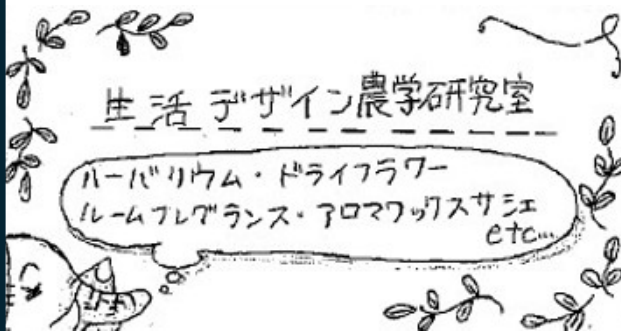 生活デザイン農学研究室
ハーバリウム・ドライフラワー
ルームフレグランス・アロマワックスサシェ
etc...